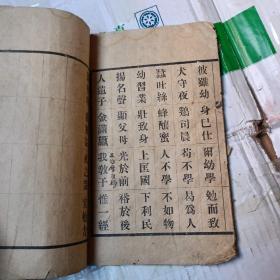 彼雖幼 身已仕 爾幼學 勉而致
犬守夜 鷄司晨 苟不學 曷爲人
蠶吐絲 蜂釀蜜 人不學 不如物
幼習業 壯致身 上匡國 下利民
揚名聲 顯父母 光於前 裕於後
人遺子 金滿籯 我教子 惟一經